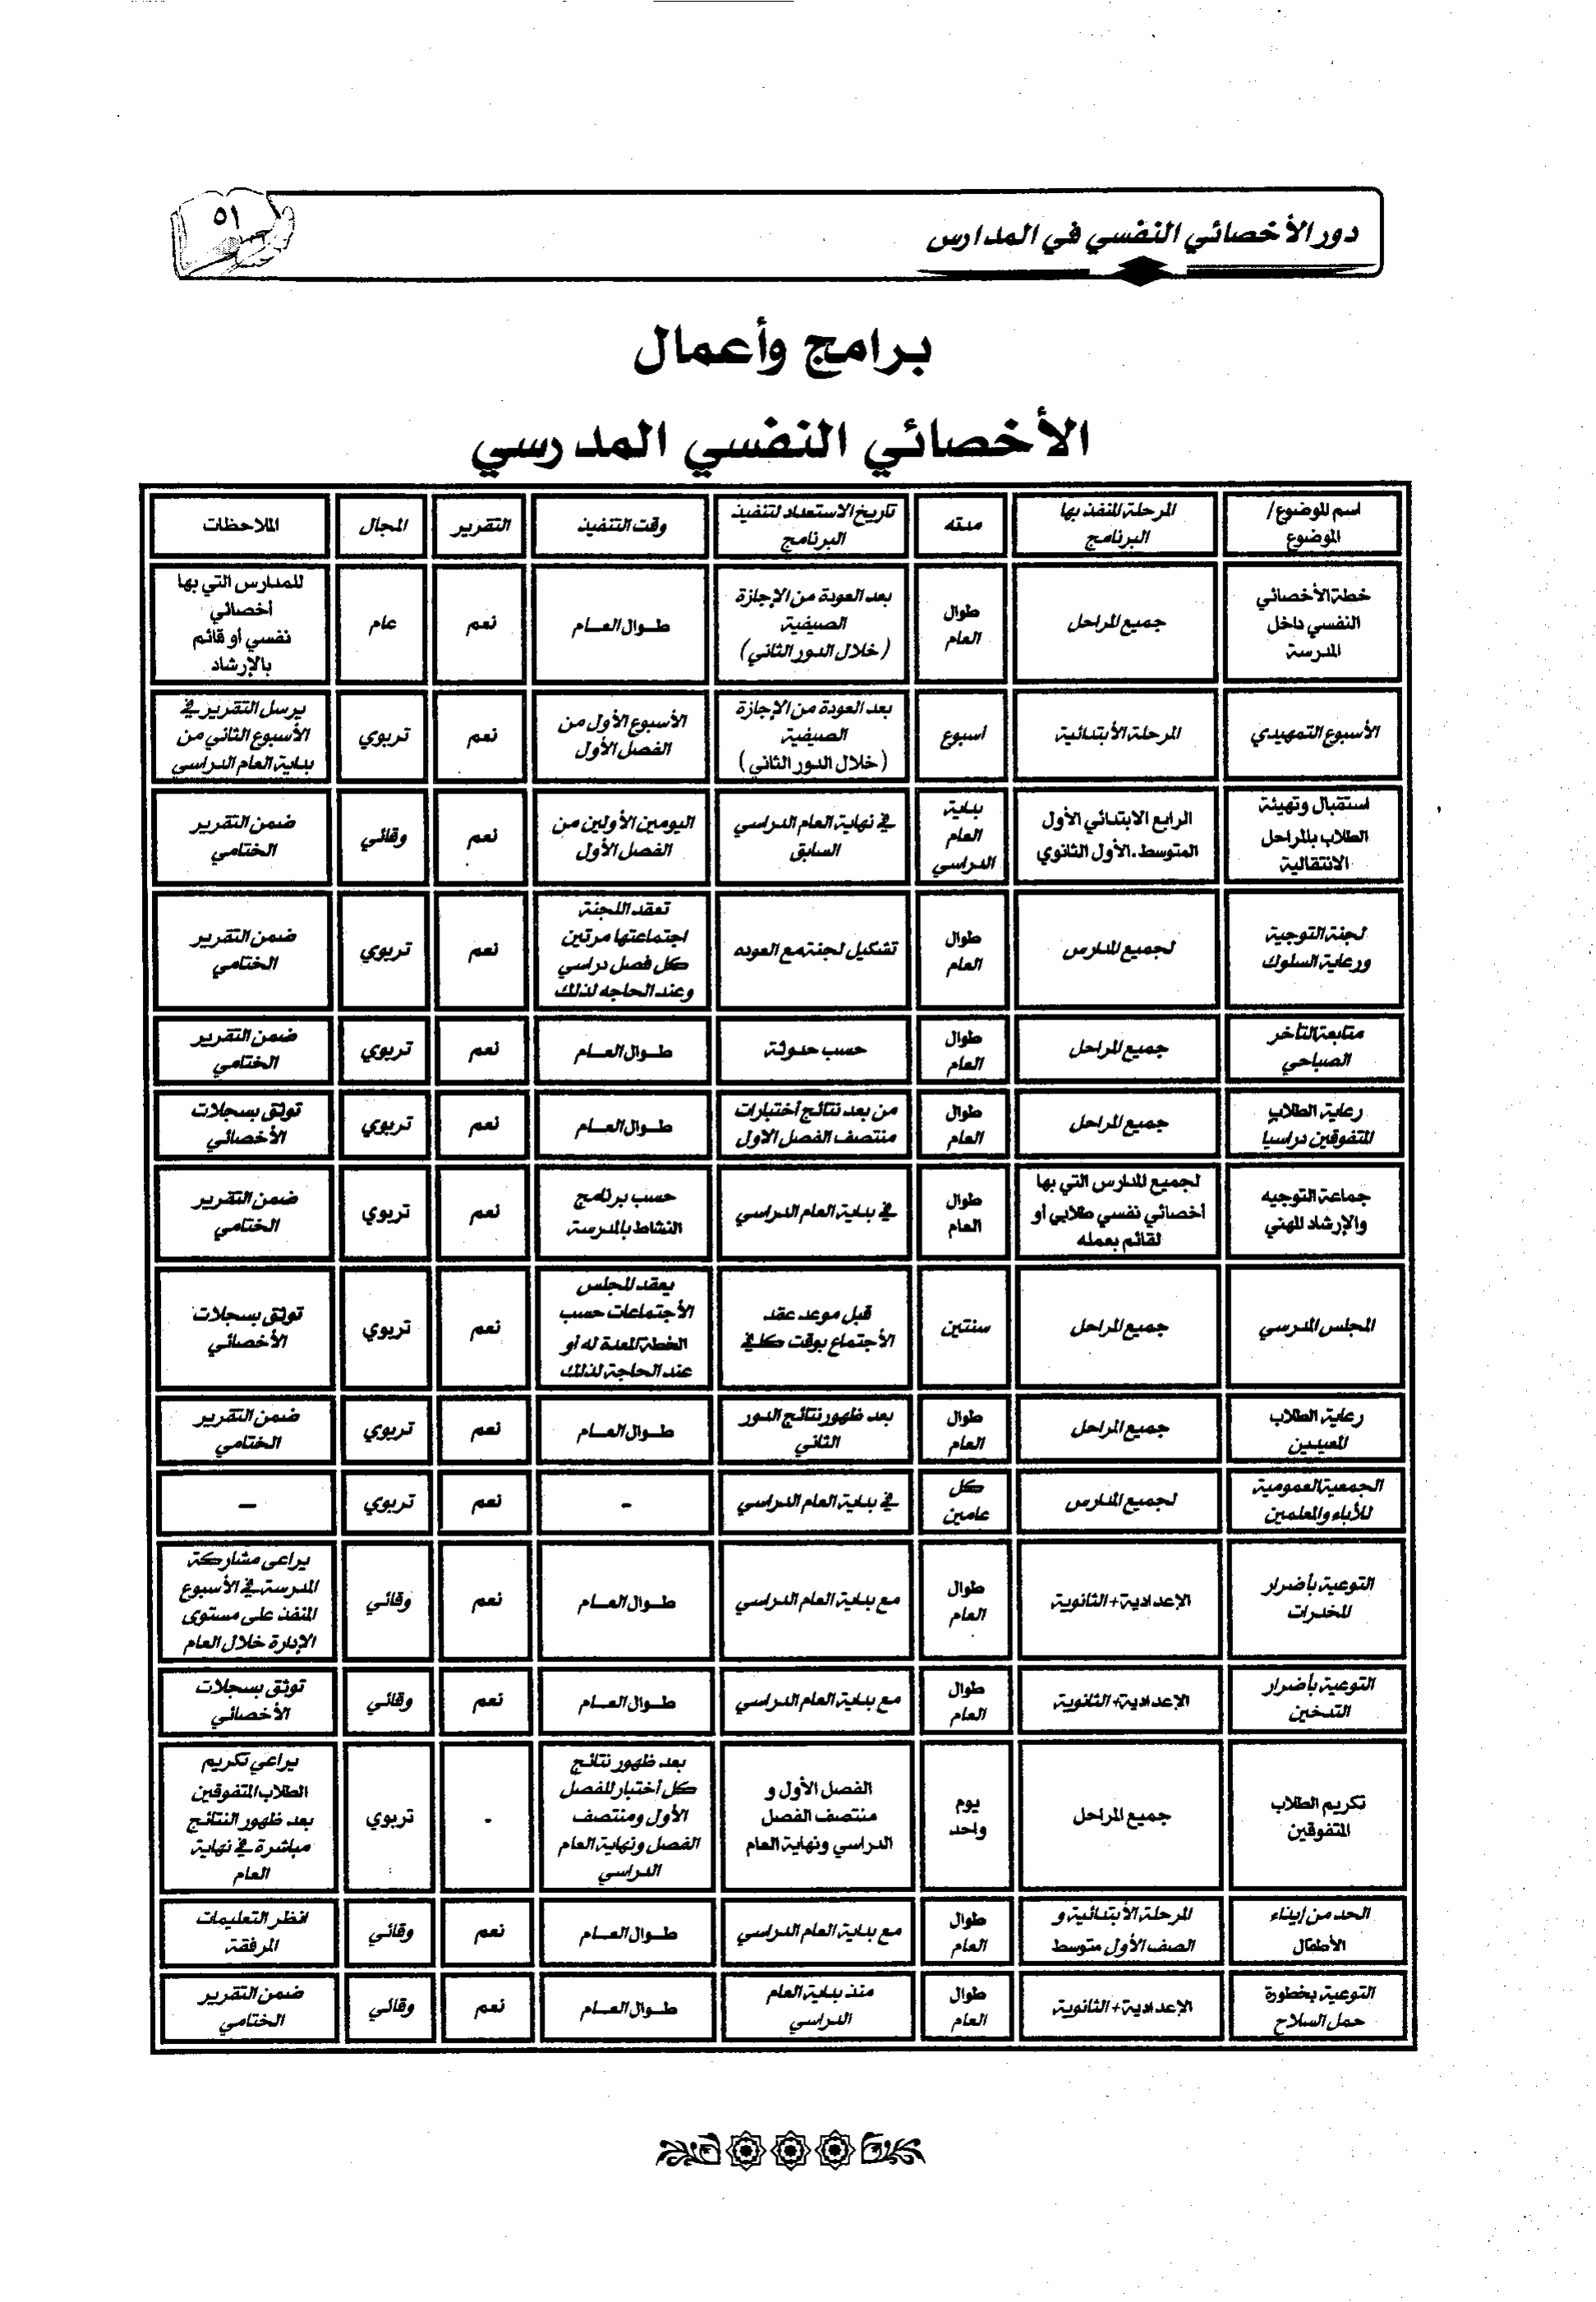 دور الأخصائي النفسي في المدارس
٥١
برامج وأعمال
الأخصائي النفسي المدرسي
اسم الموضوع/
الموضوع
المرحلة المنفذ بها
البرنامج
مدته
تاريخ الاستعداد لتنفيذ
البرنامج
وقت التنفيذ
التقرير
المجال
الملاحظات
خطة الأخصائي
النفسي داخل
المدرسة
جميع المراحل
طوال
العام
بعد العودة من الإجازة
الصيفية
(خلال الدور الثاني)
طـوال العـام
نعم
عام
للمدارس التي بها
أخصائي
نفسي أو قائم
بالإرشاد
الأسبوع التمهيدي
المرحلة الأبتدائية
اسبوع
بعد العودة من الإجازة
الصيفية
(خلال الدور الثاني)
الأسبوع الأول من
الفصل الأول
نعم
تربوي
يرسل التقرير في
الأسبوع الثاني من
بداية العام الدراسي
استقبال وتهيئة
الطلاب بالمراحل
الانتقالية
الرابع الابتدائي الأول
المتوسط.الأول الثانوي
بداية
العام
الدراسي
في نهاية العام الدراسي
السابق
اليومين الأولين من
الفصل الأول
نعم
وقائي
ضمن التقرير
الختامي
لجنة التوجية
ورعاية السلوك
لجميع المدارس
طوال
العام
تشكيل لجنة مع العوده
تعقد اللجنة
اجتماعتها مرتين
كل فصل دراسي
وعند الحاجه لذلك
نعم
تربوي
ضمن التقرير
الختامي
متابعة التأخر
الصباحي
جميع المراحل
طوال
العام
حسب حدوثة
طـوال العـام
نعم
تربوي
ضمن التقرير
الختامي
رعاية الطلاب
المتفوقين دراسيا
جميع المراحل
طوال
العام
من بعد نتائج أختبارات
منتصف الفصل الاول
طـوال العـام
نعم
تربوي
توثق بسجلات
الأخصائي
جماعة التوجيه
والإرشاد المهني
لجميع المدارس التي بها
أخصائي نفسي طلابي أو
لقائم بعمله
طوال
العام
في بداية العام الدراسي
حسب برنامج
النشاط بالمدرسة
نعم
تربوي
ضمن التقرير
الختامي
المجلس المدرسي
جميع المراحل
سنتين
قبل موعد عقد
الأجتماع بوقت كافي
يعقد المجلس
الأجتماعات حسب
الخطة المعدة له أو
عند الحاجة لذلك
نعم
تربوي
توثق بسجلات
الأخصائي
رعاية الطلاب
المعيدين
جميع المراحل
طوال
العام
بعد ظهور نتائج الدور
الثاني
طـوال العـام
نعم
تربوي
ضمن التقرير
الختامي
الجمعية العمومية
للأباء والمعلمين
لجميع المدارس
كل
عامين
في بداية العام الدراسي
-
نعم
تربوي
–
التوعية بأضرار
المخدرات
الإعدادية+ الثانوية
طوال
العام
مع بداية العام الدراسي
طـوال العـام
نعم
وقائي
يراعى مشاركة
المدرسة في الأسبوع
المنفذ على مستوى
الإدارة خلال العام
التوعية بأضرار
التدخين
الإعدادية+ الثانوية
طوال
العام
مع بداية العام الدراسي
طـوال العـام
نعم
وقائي
توثق بسجلات
الأخصائي
تكريم الطلاب
المتفوقين
جميع المراحل
يوم
واحد
الفصل الأول و
منتصف الفصل
الدراسي ونهاية العام
بعد ظهور نتائج
كل أختبار للفصل
الأول ومنتصف
الفصل ونهاية العام
الدراسي
-
تربوي
يراعي تكريم
الطلاب المتفوقين
بعد ظهور النتائج
مباشرة في نهاية
العام
الحد من إيذاء
الأطفال
المرحلة الأبتدائية و
الصف الأول متوسط
طوال
العام
مع بداية العام الدراسي
طـوال العـام
نعم
وقائي
انظر التعليمات
المرفقة
التوعية بخطورة
حمل السلاح
الإعدادية+ الثانوية
طوال
العام
منذ بداية العام
الدراسي
طـوال العـام
نعم
وقائي
ضمن التقرير
الختامي